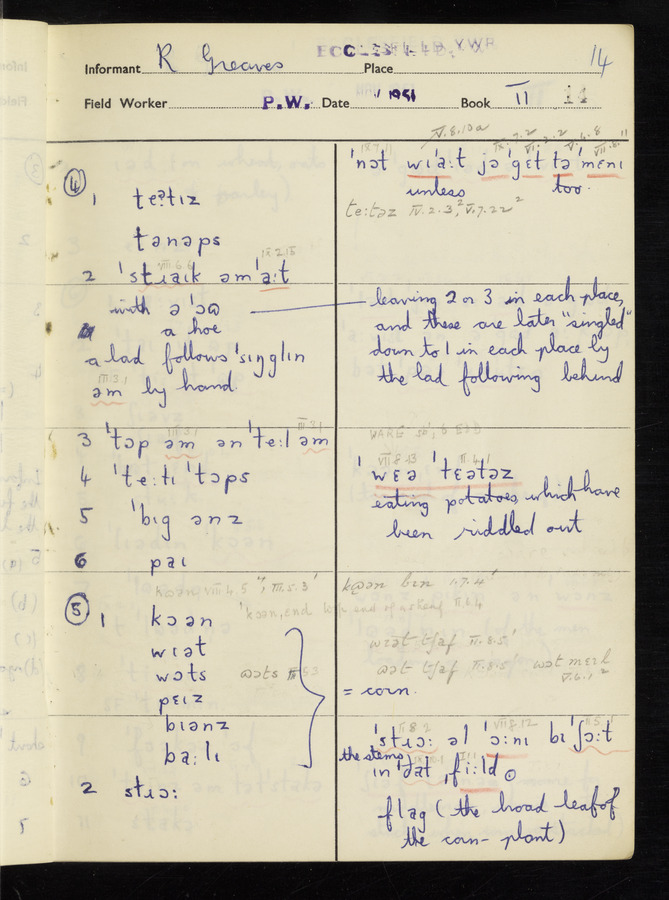 ECCLESFIELD, YWR
Informant R Greaves Place 14
Field Worker P.W. Date 1951 Book II 14
④
1 teʔtɪz
tənəps
2 'stɹaɪk əm'a:t
with ə 'ɔə
a hoe
a lad follows 'sɪŋglɪn
əm by hand
3 'tɔp əm ən 'te:l əm
4 'te:tɪ 'tɔps
5 'bɪg ənz
6 paɪ
⑤ 1 kɔən
wɪət
wɔts
pɛɪz
'bɪənz
ba:lɪ
2 stɹɔ:
'nɔt wɪ'a:t jə 'gɛt tə 'mɛnɪ
unless too.
te:təz IV.2.3, V.7.22
leaving 2 or 3 in each place,
and these are later "singled"
down to 1 in each place by
the lad following behind
'wɛə 'tɛətəz
eating potatoes which have
been riddled out
kɔən bɪn 1.7.4
wɪət tʃaf II.8.5
wɔts
ɔət tʃaf II.8.5
= corn.
'stɹɔ: əl 'ɔ:nɪ bɪ 'ʃɔ:t
the stems
in 'ðat ,fi:ld
flag (the broad leaf of
the corn-plant)